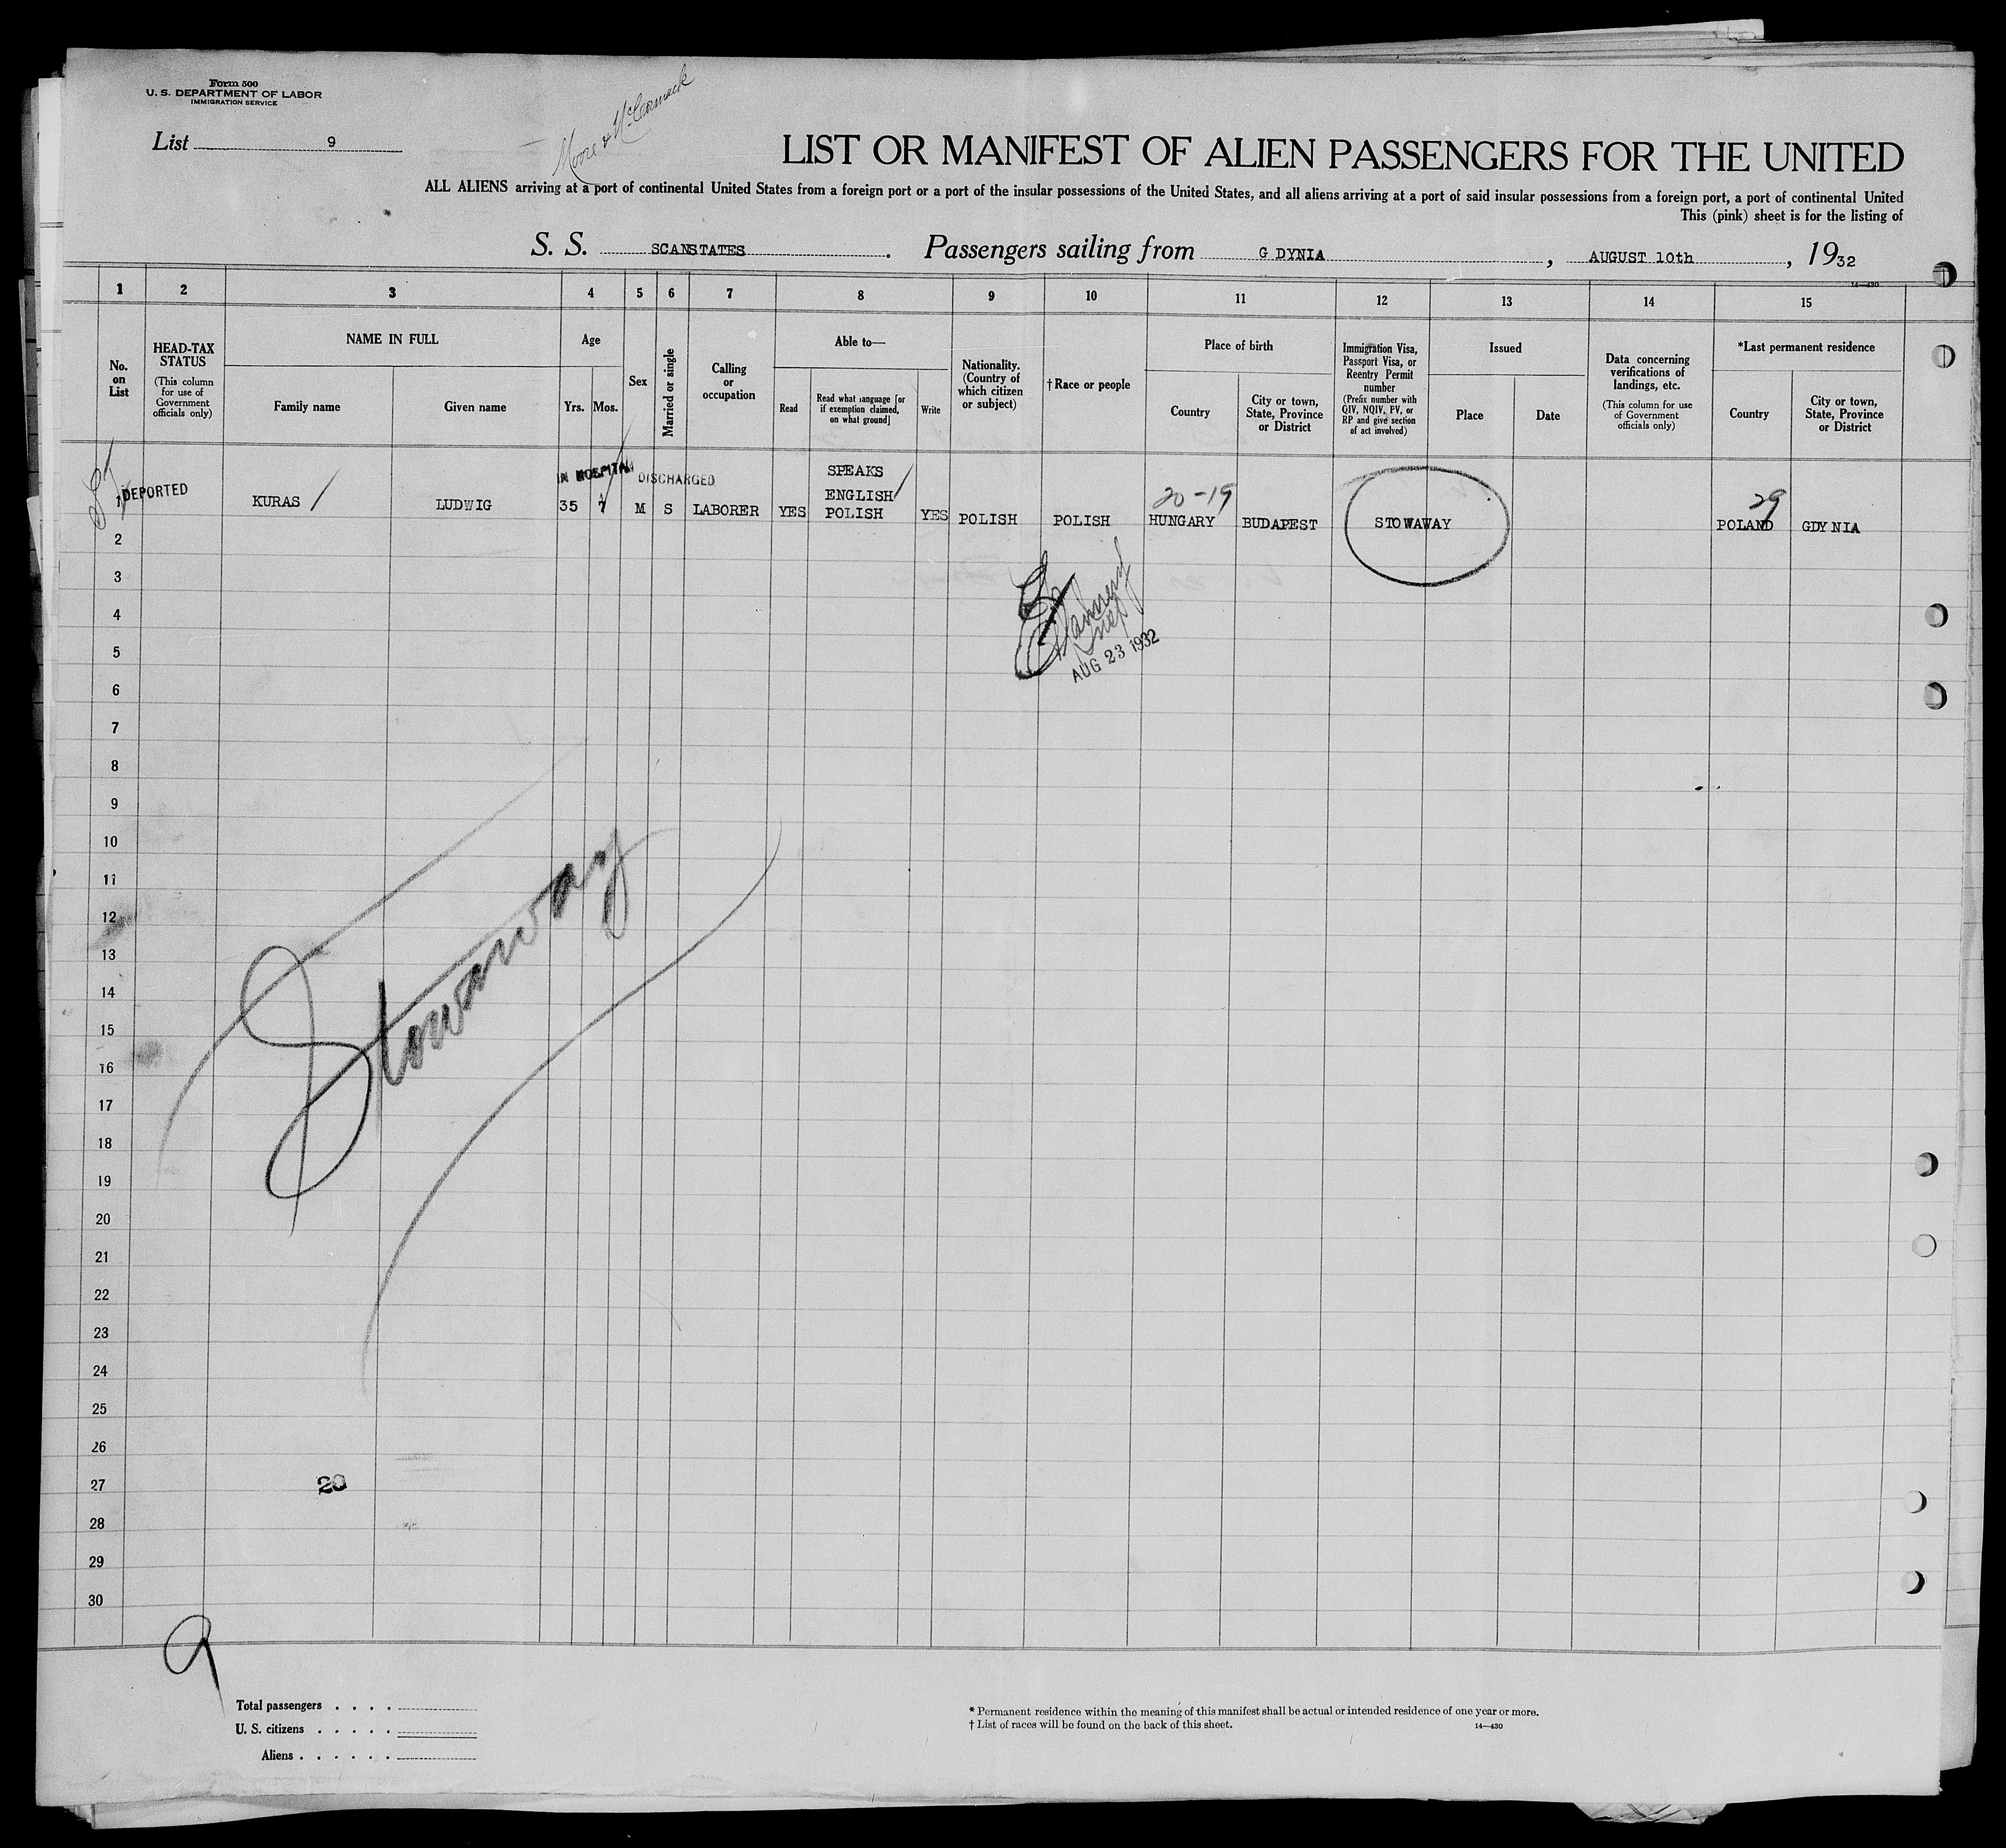 Form 500
U. S. DEPARTMENT OF LABOR
IMMIGRATION SERVICE
Moore & McCormack
List 9
LIST OR MANIFEST OF ALIEN PASSENGERS FOR THE UNITED
ALL ALIENS arriving at a port of continental United States from a foreign port or a port of the insular possessions of the United States, and all aliens arriving at a port of said insular possessions from a foreign port, a port of continental United
This (pink) sheet is for the listing of
S. S. SCANSTATES. Passengers sailing from G DYNIA, AUGUST 10th, 1932
14—430
1 2 3 4 5 6 7 8 9 10 11 12 13 14 15
No. on List
HEAD-TAX STATUS
(This column for use of Government officials only)
NAME IN FULL
Family name
Given name
Age
Yrs.
Mos.
Sex
Married or single
Calling or occupation
Able to—
Read
Read what language [or if exemption claimed, on what ground]
Write
Nationality. (Country of which citizen or subject)
†Race or people
Place of birth
Country
City or town, State, Province or District
Immigration Visa, Passport Visa, or Reentry Permit number
(Prefix number with QIV, NQIV, PV, or RP and give section of act involved)
Issued
Place
Date
Data concerning verifications of landings, etc.
(This column for use of Government officials only)
*Last permanent residence
Country
City or town, State, Province or District
IN HOSPITAL DISCHARGED
20-19
29
1 DEPORTED KURAS LUDWIG 35 7 M S LABORER YES SPEAKS ENGLISH POLISH YES POLISH POLISH HUNGARY BUDAPEST STOWAWAY POLAND GDY NIA
2
3
4
AUG 23 1932
5
6
7
8
9
10
11
12
13
14
Stowaway
15
16
17
18
19
20
21
22
23
24
25
26
27
20
28
29
30
9
Total passengers . . . .
U. S. citizens . . . . .
Aliens . . . . . .
* Permanent residence within the meaning of this manifest shall be actual or intended residence of one year or more.
† List of races will be found on the back of this sheet.
14—430